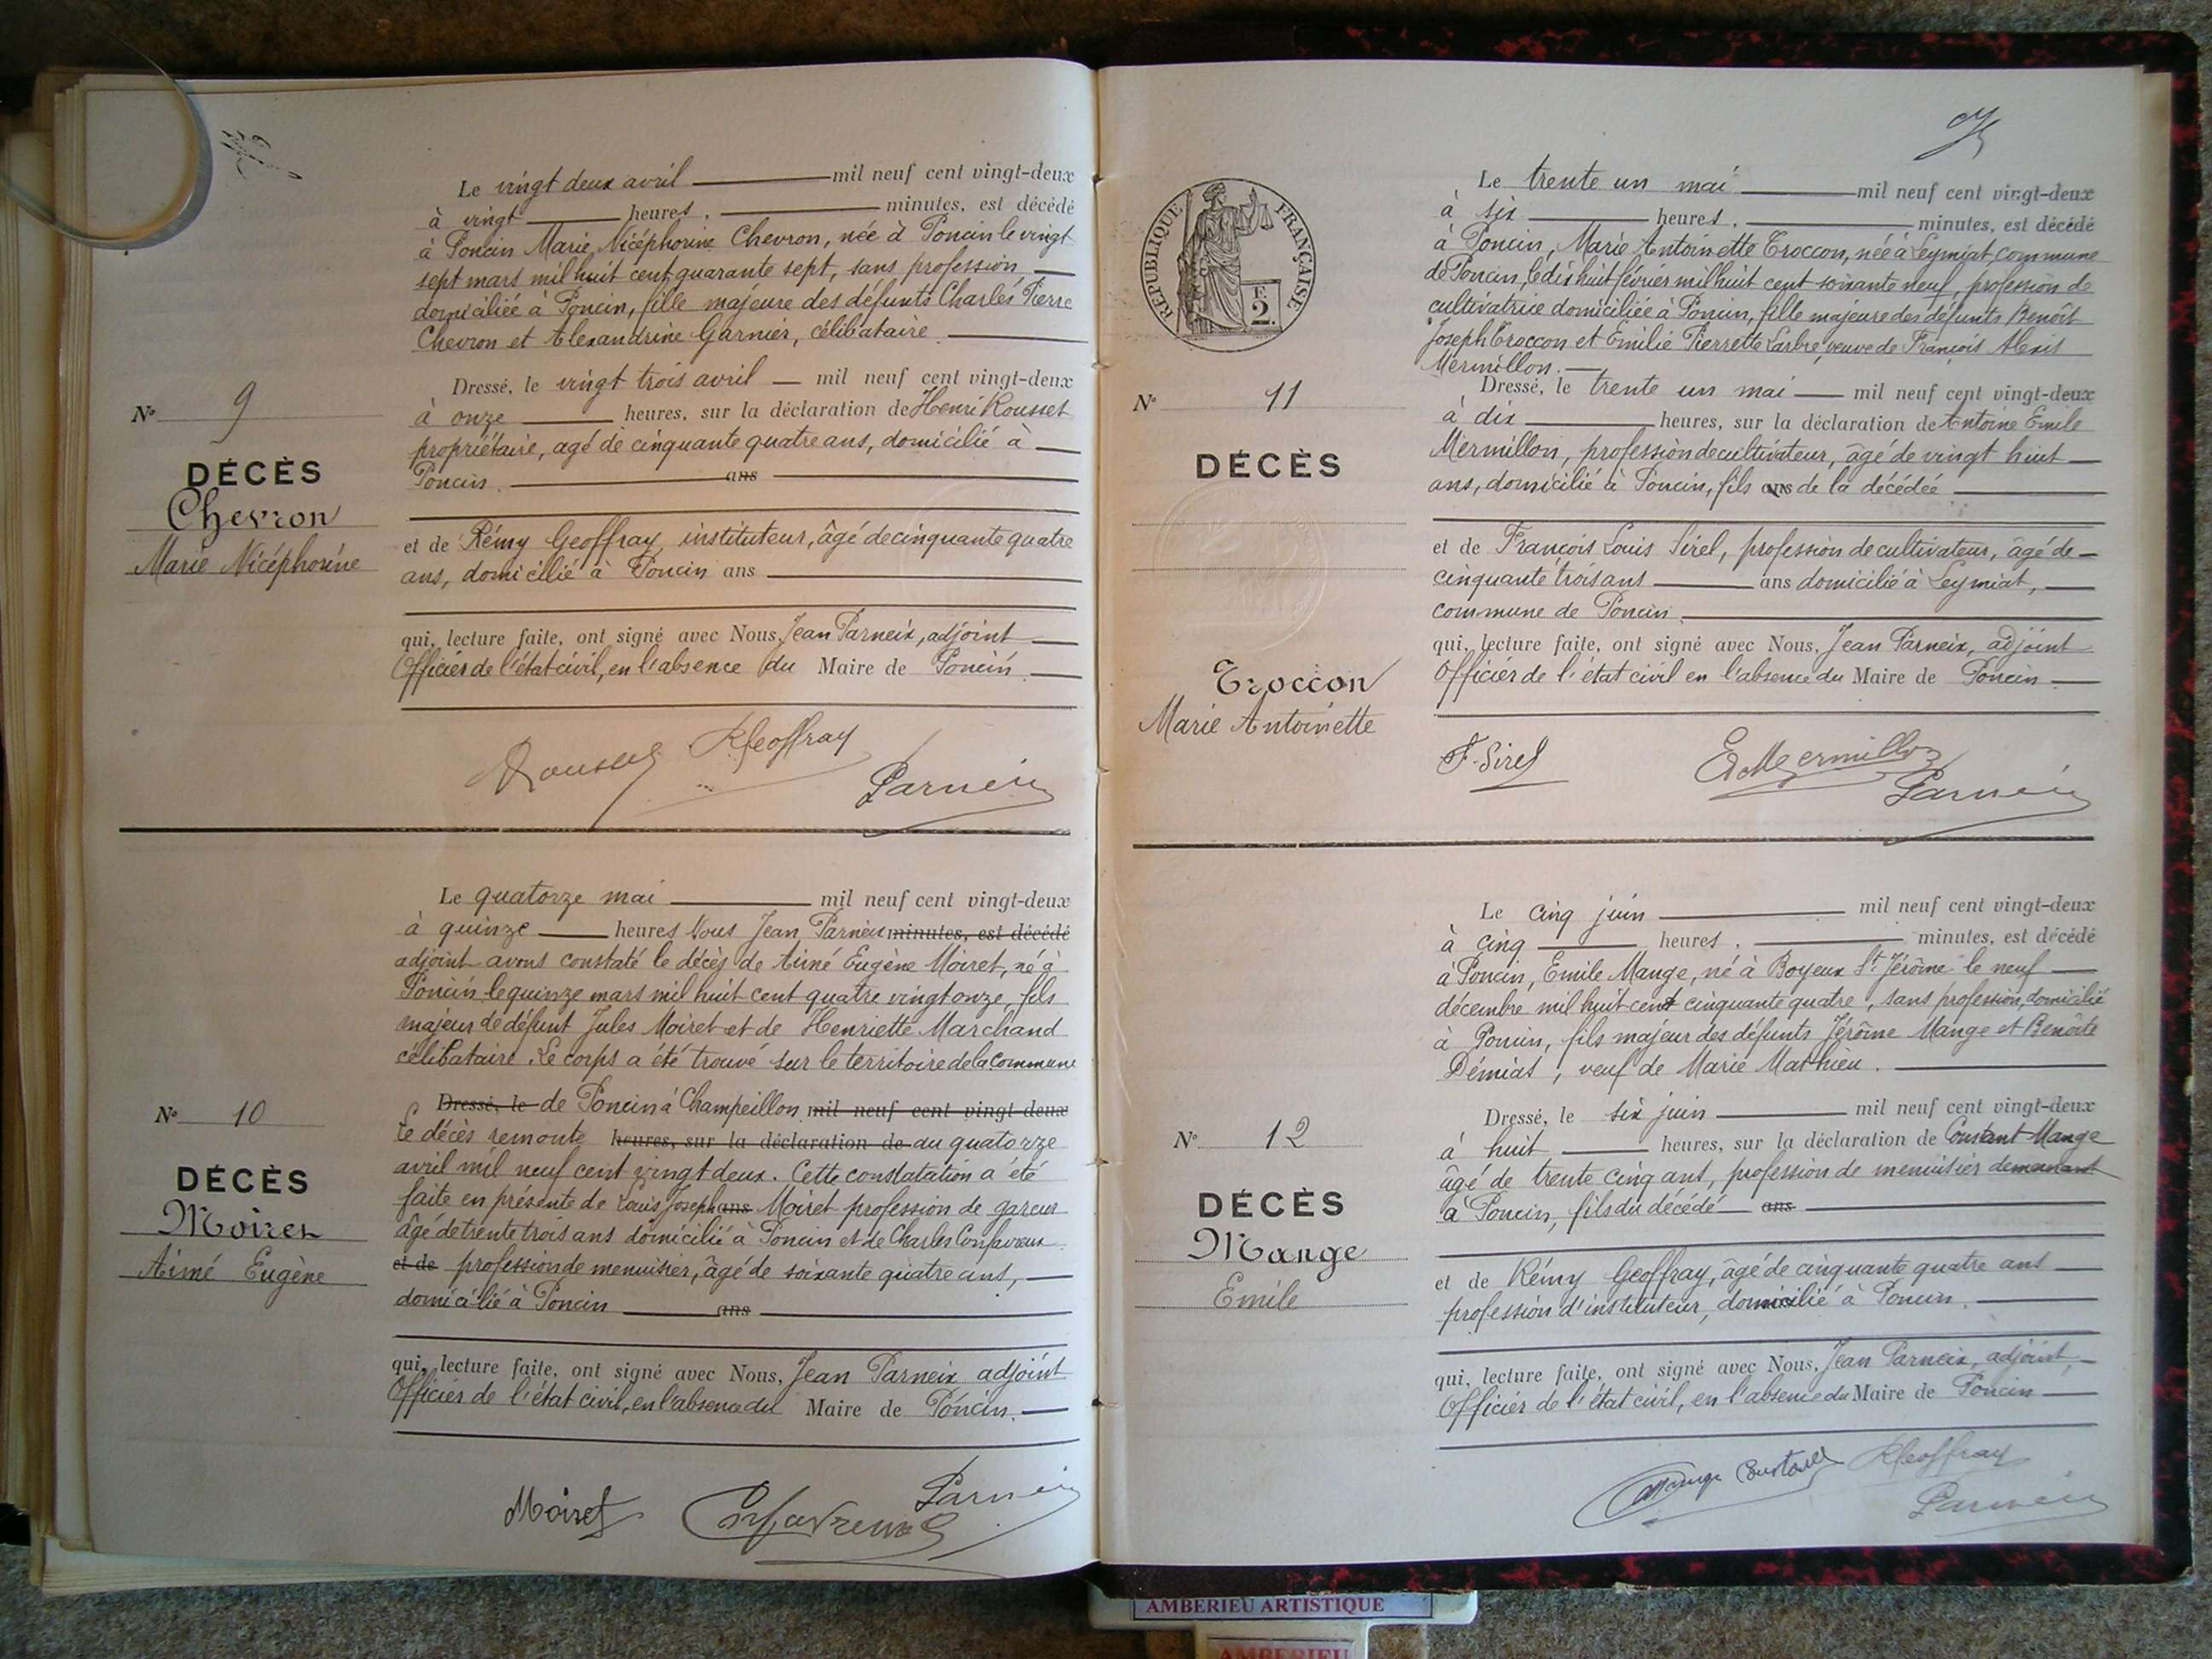 Le vingt deux avril mil neuf cent vingt-deux
à vingt heures, minutes, est décédé
à Poncin Marie Nicéphorine Chevron, née à Poncin le vingt
sept mars mil huit cent quarante sept, sans profession
domiciliée à Poncin, fille majeure des défunts Charles Pierre
Chevron et Alexandrine Garnier, célibataire.
Dressé, le vingt trois avril mil neuf cent vingt-deux
à onze heures, sur la déclaration de Henri Rousset
propriétaire, agé de cinquante quatre ans, domicilié à
Poncin. ans
et de Rémy Geoffray, instituteur, âgé de cinquante quatre
ans, domicilié à Poncin ans
qui, lecture faite, ont signé avec Nous, Jean Parneix, adjoint
Officier de l'état civil, en l'absence du Maire de Poncin.
Nº 9
DÉCÈS
Chevron
Marie Nicéphorine
Rousset RGeoffray
Parneix
Le quatorze mai mil neuf cent vingt-deux
à quinze heures Nous Jean Parneix minutes, est décédé
adjoint avons constaté le décès de Aimé Eugène Moiret, né à
Poncin le quinze mars mil huit cent quatre vingt onze, fils
majeur de défunt Jules Moiret et de Henriette Marchand
célibataire. Le corps a été trouvé sur le territoire de la commune
Dressé, le de Poncin à Champeillon mil neuf cent vingt-deux
le décès remonte heures, sur la déclaration de au quatorze
avril mil neuf cent vingt deux. Cette constatation a été
faite en présente de Louis Joseph ans Moiret profession de
âgé de trente trois ans domicilié à Poncin et de Charles Confavreux
et de profession de menuisier, âgé de soixante quatre ans,
domicilié à Poncin ans
qui, lecture faite, ont signé avec Nous, Jean Parneix adjoint
Officier de l'état civil, en l'absence du Maire de Poncin.
Nº 10
DÉCÈS
Moiret
Aimé Eugène
Moiret Confavreux Parneix
RÉPUBLIQUE FRANÇAISE
2
Le trente un mai mil neuf cent vingt-deux
à six heures, minutes, est décédé
à Poncin, Marie Antoinette Troccon, née à Leymiat commune
de Poncin, le dix huit février mil huit cent soixante neuf, profession de
cultivatrice domiciliée à Poncin, fille majeure des défunts Benoît
Joseph Troccon et Emilie Pierrette Larbre, veuve de François Alexis
Mermillon.
Dressé, le trente un mai mil neuf cent vingt-deux
à dix heures, sur la déclaration de Antoine Emile
Mermillon, profession de cultivateur, âgé de vingt huit
ans, domicilié à Poncin, fils ans de la décédée
et de François Louis Sirel, profession de cultivateur, âgé de
cinquante trois ans ans domicilié à Leymiat,
commune de Poncin.
qui, lecture faite, ont signé avec Nous, Jean Parneix, adjoint
Officier de l'état civil en l'absence du Maire de Poncin
Nº 11
DÉCÈS
Troccon
Marie Antoinette
F. Sirel E Mermillon
Parneix
Le cinq juin mil neuf cent vingt-deux
à cinq heures, minutes, est décédé
à Poncin, Emile Mange, né à Boyeux St Jérôme le neuf
décembre mil huit cent cinquante quatre, sans profession, domicilié
à Poncin, fils majeur des défunts Jérôme Mange et Benoîte
Démiat, veuf de Marie Mathieu.
Dressé, le six juin mil neuf cent vingt-deux
à huit heures, sur la déclaration de Constant Mange
âgé de trente cinq ans, profession de menuisier demeurant
à Poncin, fils du décédé ans
et de Rémy Geoffray, âgé de cinquante quatre ans
profession d'instituteur, domicilié à Poncin.
qui, lecture faite, ont signé avec Nous, Jean Parneix, adjoint,
Officier de l'état civil, en l'absence du Maire de Poncin
Nº 12
DÉCÈS
Mange
Emile
Mange Constant RGeoffray
Parneix
AMBERIEU ARTISTIQUE
AMBERIEU